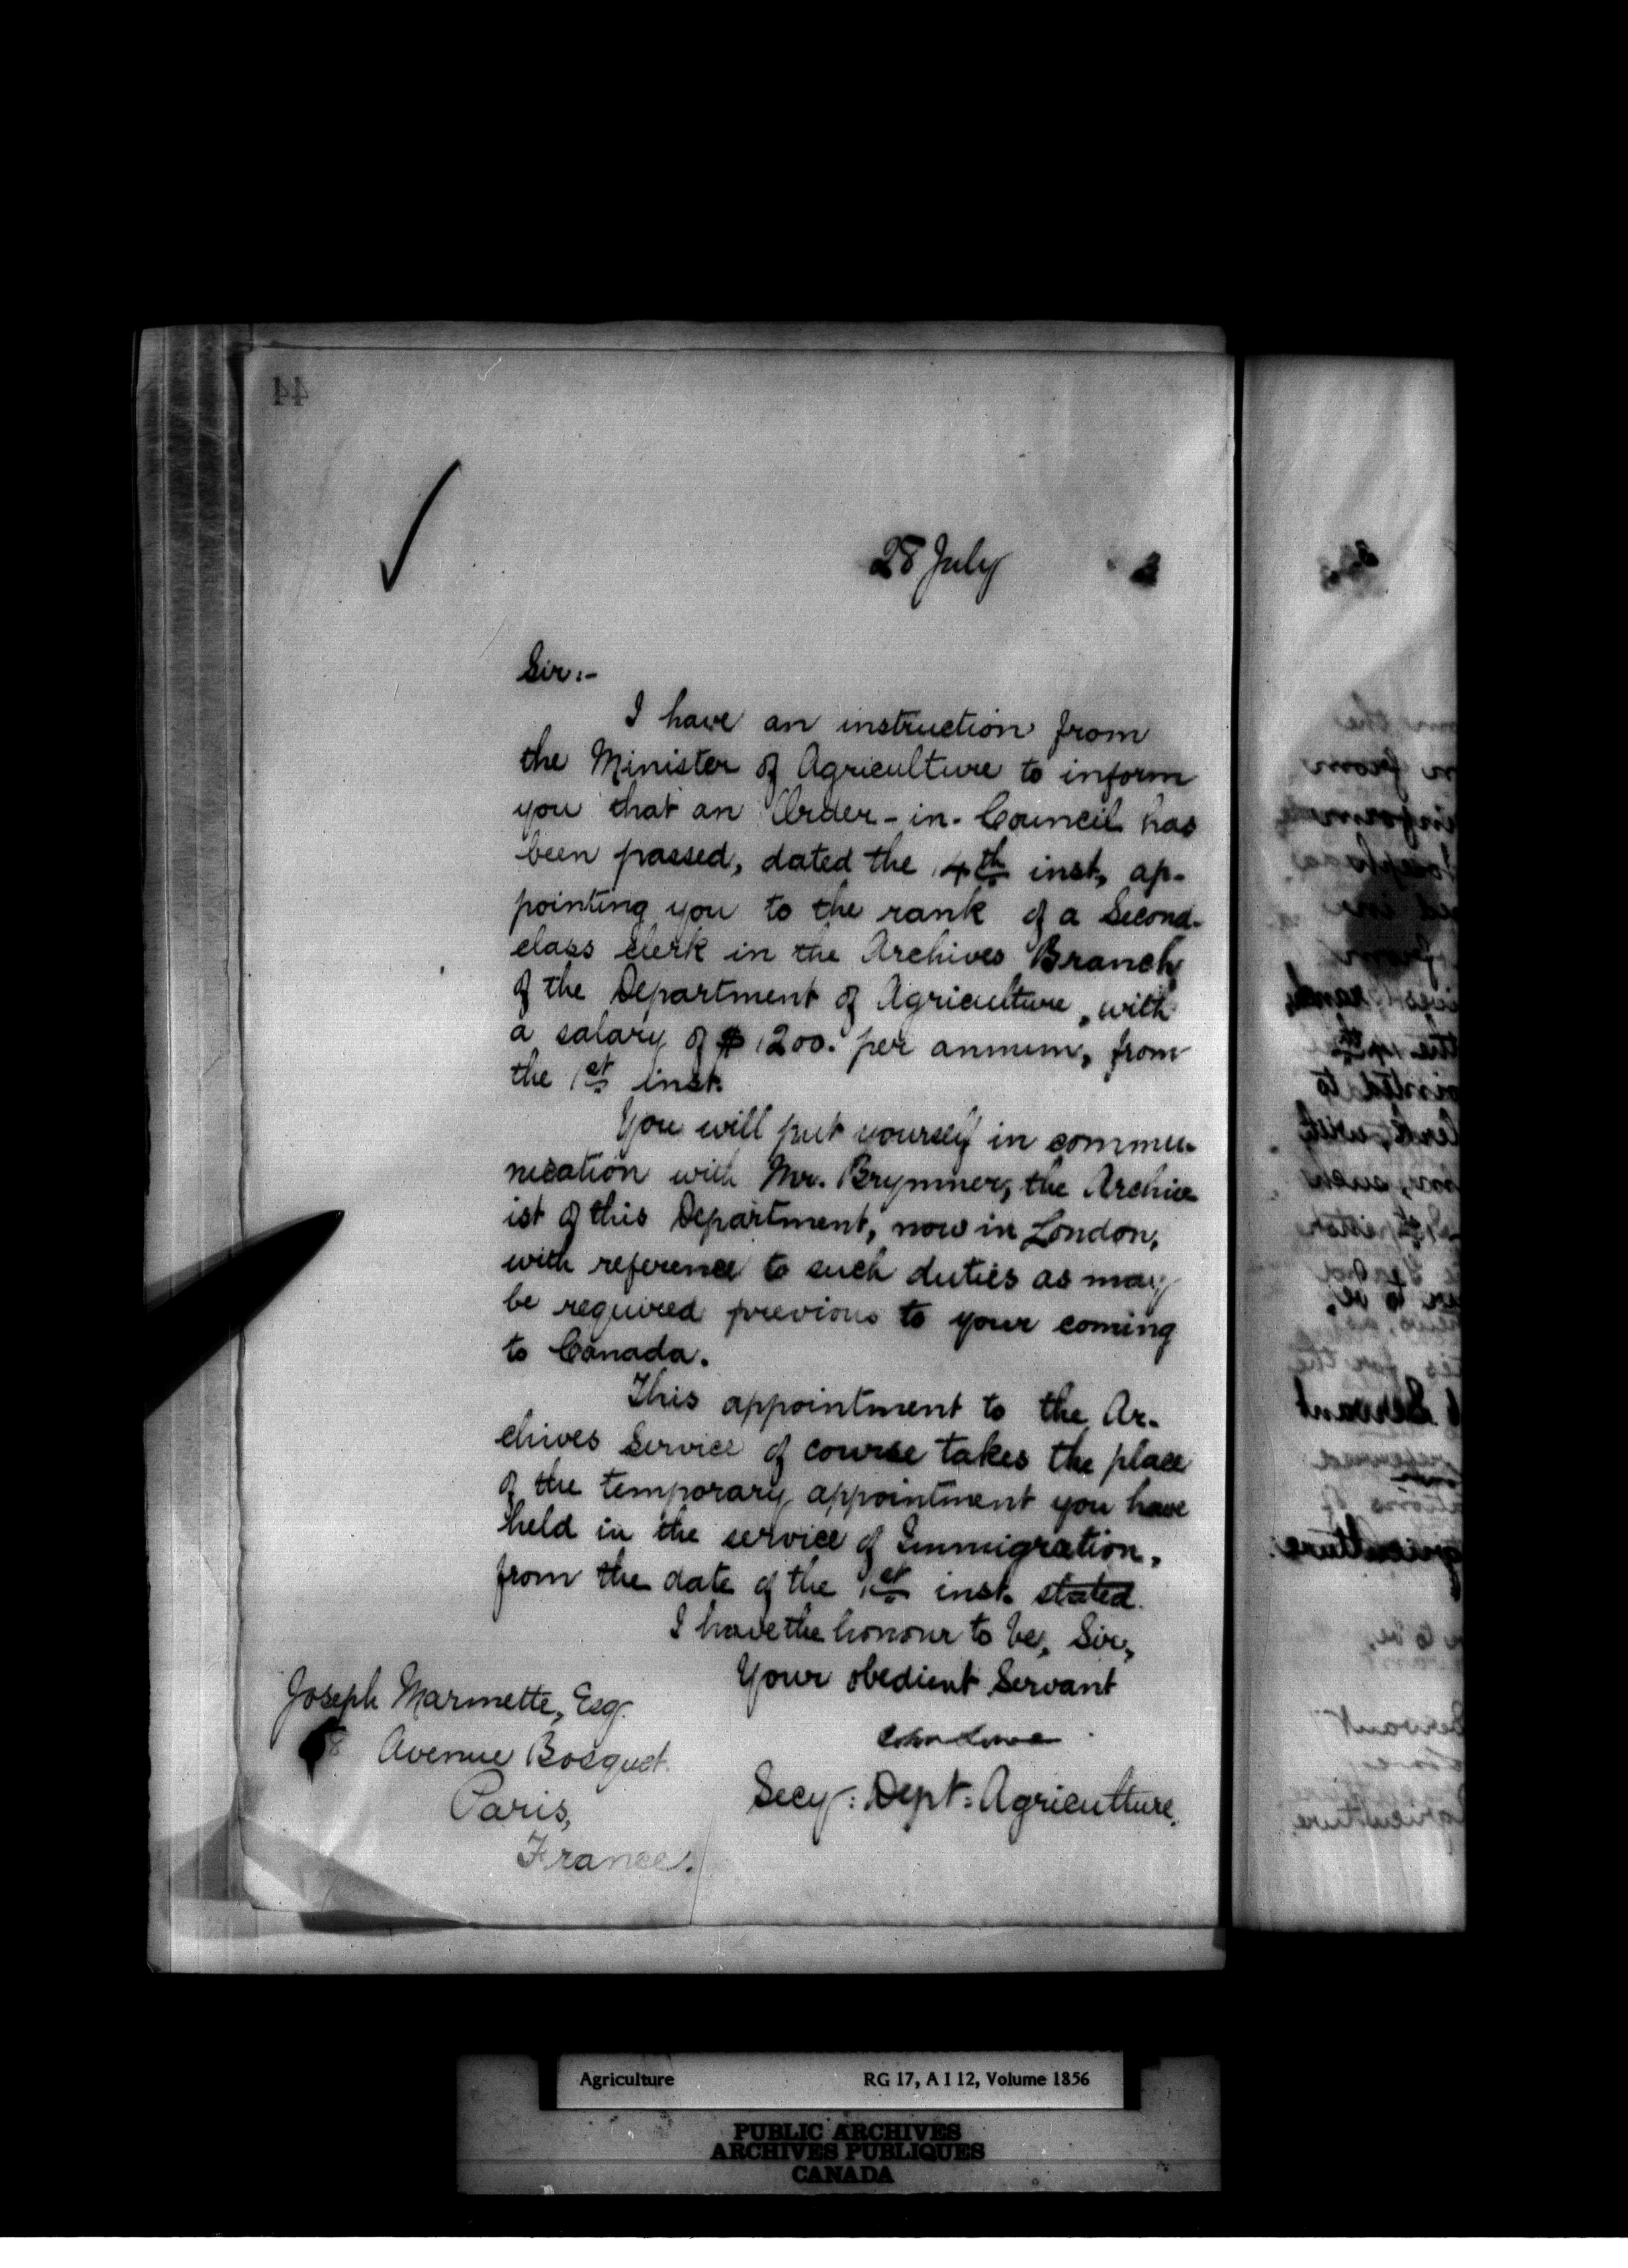 44
28 July 3
Sir:-
I have an instruction from
the Minister of Agriculture to inform
you that an Order-in-Council has
been passed, dated the 4th inst, ap-
pointing you to the rank of a Second-
class clerk in the Archives Branch
of the Department of Agriculture, with
a salary of $1200. per annum, from
the 1st inst.
You will put yourself in commu-
nication with Mr. Brymner, the Archiv-
ist of this Department, now in London,
with reference to such duties as may
be required previous to your coming
to Canada.
This appointment to the Ar-
chives Service of course takes the place
of the temporary appointment you have
held in the service of Immigration,
from the date of the 1st inst. stated.
I have the honour to be, Sir,
Your obedient Servant
John Lowe
Secy: Dept: Agriculture.
Joseph Marmette, Esq.
Avenue Bosquet.
Paris,
France.
Agriculture RG 17, A I 12, Volume 1856
PUBLIC ARCHIVES
ARCHIVES PUBLIQUES
CANADA